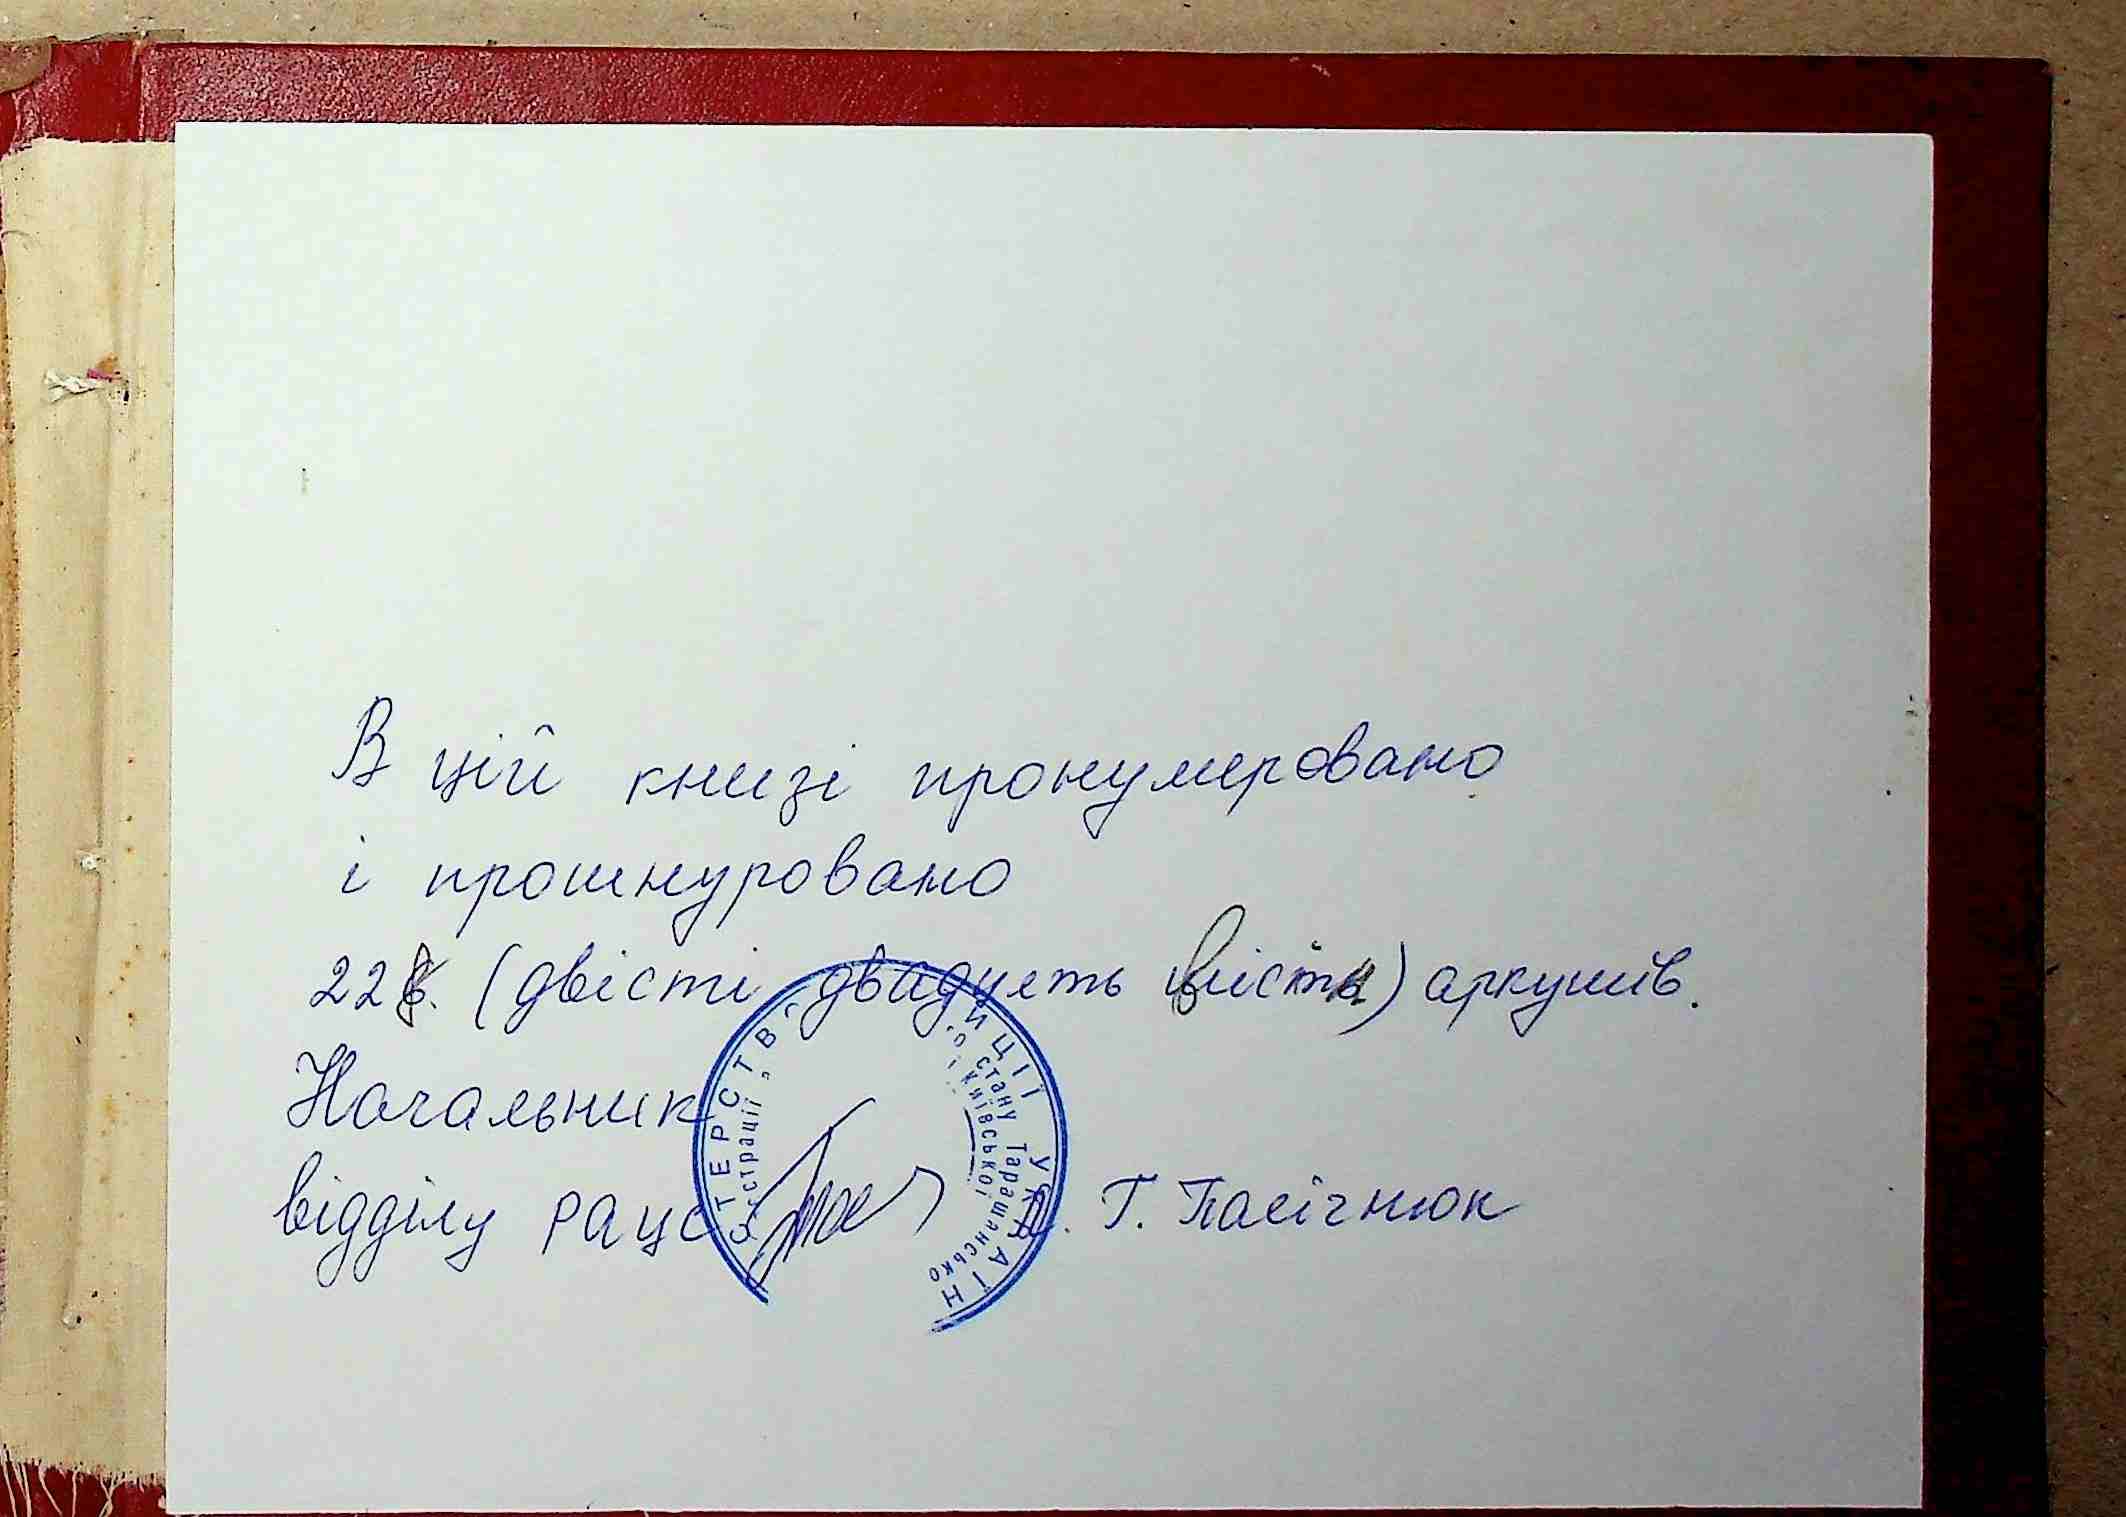 В цій книзі пронумеровано
і прошнуровано
228. (двісті двадцять вісім) аркушів.
Начальник
відділу рацс Г. Пасічнюк
ТЕРСТВ
ИЦІЇ УКРАЇН
страції
стану Таращансько
і Київської